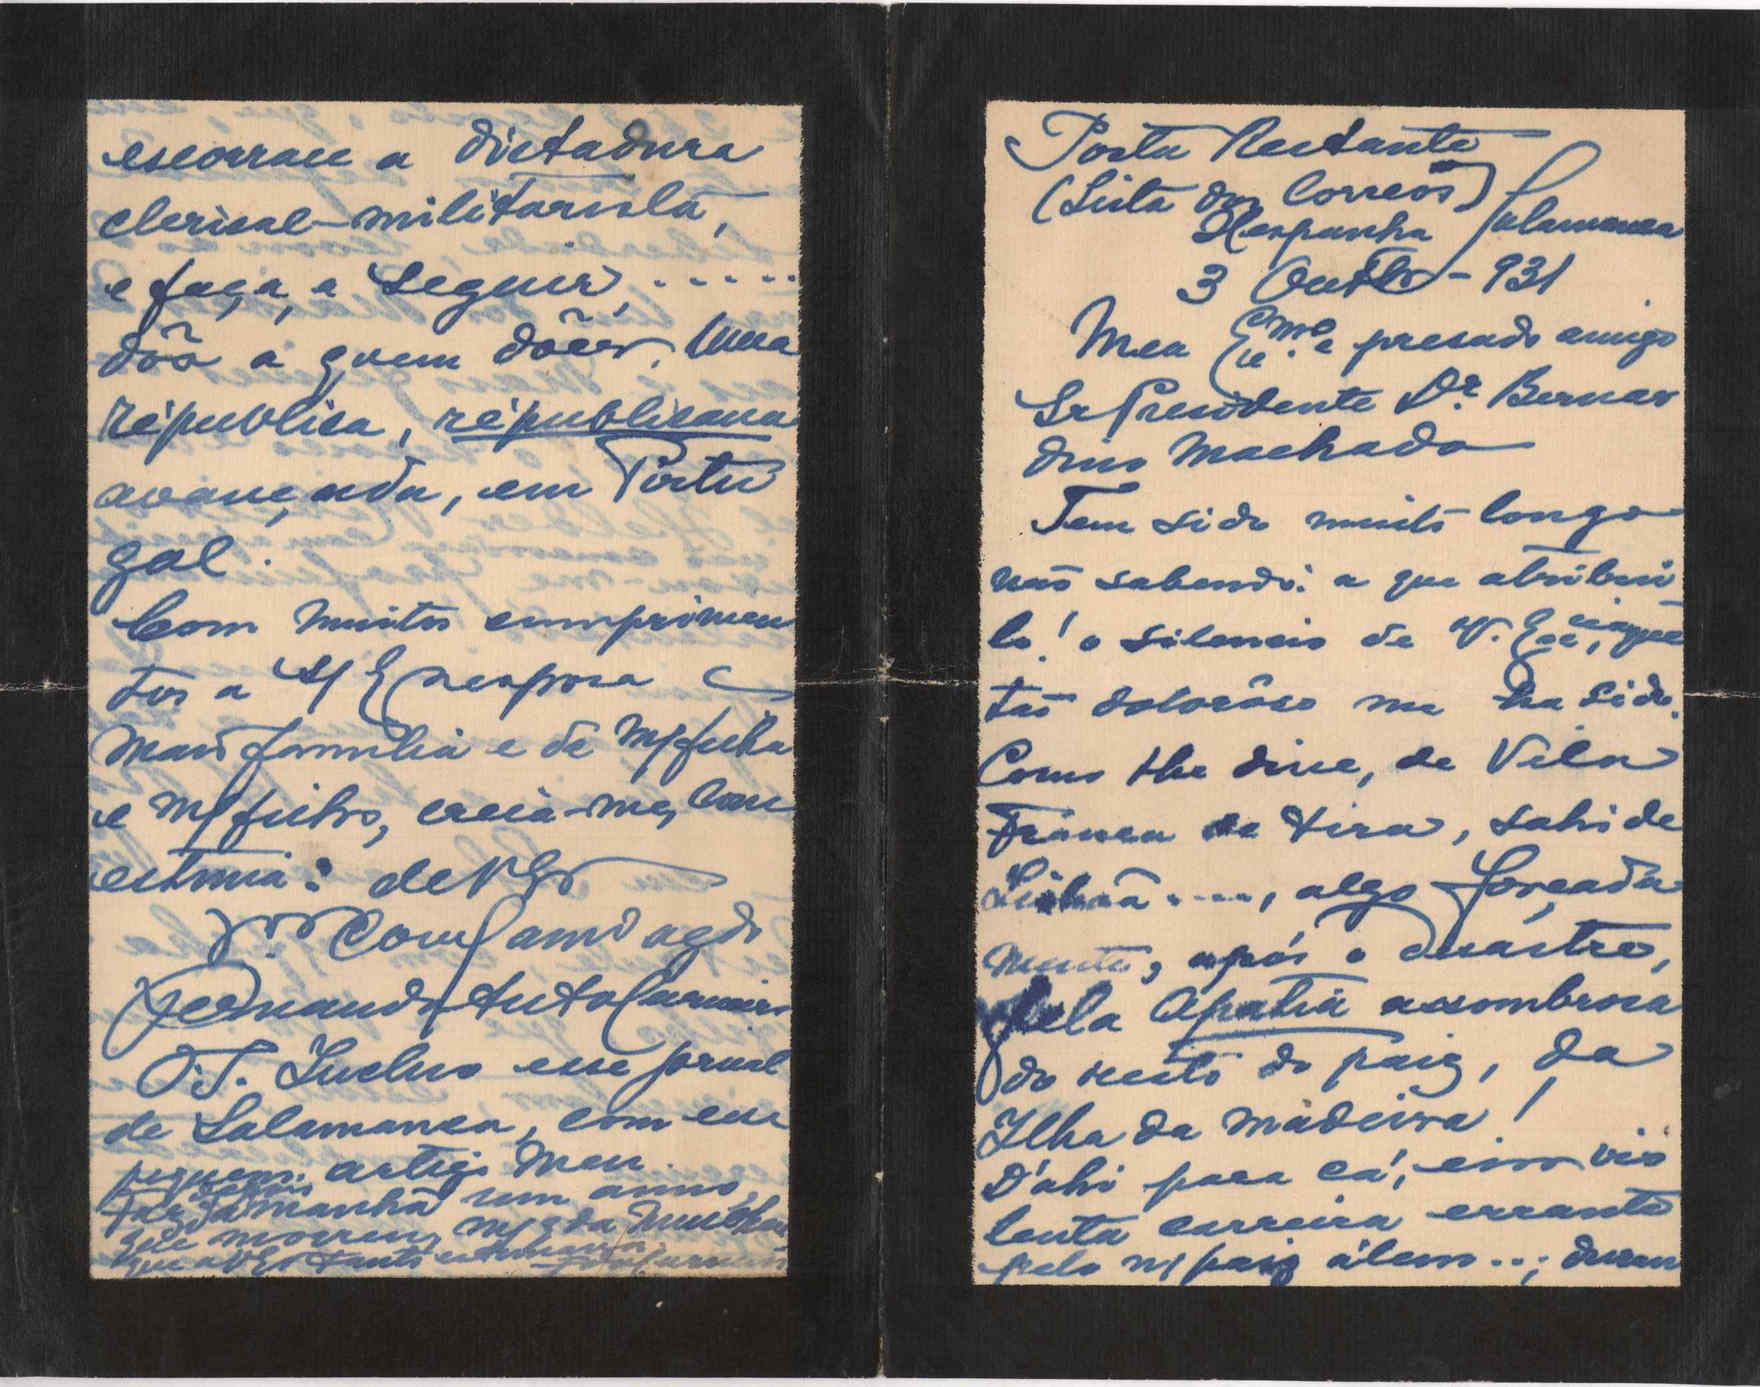 escorrace a dictadura
clerical-militarista,
e faça, a seguir, .....
dôa a quem dôer, uma
república, républicana
avançada, em Portu
gal.
Com muitos cumprimen
tos a
mais familia e de M/filha
e M/filho, creia-me, com
estima: de V Exª
Fernando
P.S. Incluo esse jornal
de Salamanca, com esse
pequeno artigo meu.
Faz manhã um anno,
que morreu,
que a V Exª tanto
Posta Restante
(Lista dos Correos) Salamanca
Hespanha
3 Outbro - 931
Meu Exmo e presado amigo
Sr Presidente Dr. Bernar
dino Machado
Tem sido muito longo
não sabendo: a que atribui
lo! o silencio de V. Exª,
tão dolorôso me ha sido.
Como lhe disse, de Vila
Franca de Xira, sahi de
Lisboa ...., algo forçada
mente, após o desastre,
pela apatia assombrosa
do resto do paiz, da
Ilha da Madeira!
D'ahi para cá, em
lenta carreira errante
pelo n/ paiz álem ..; duran